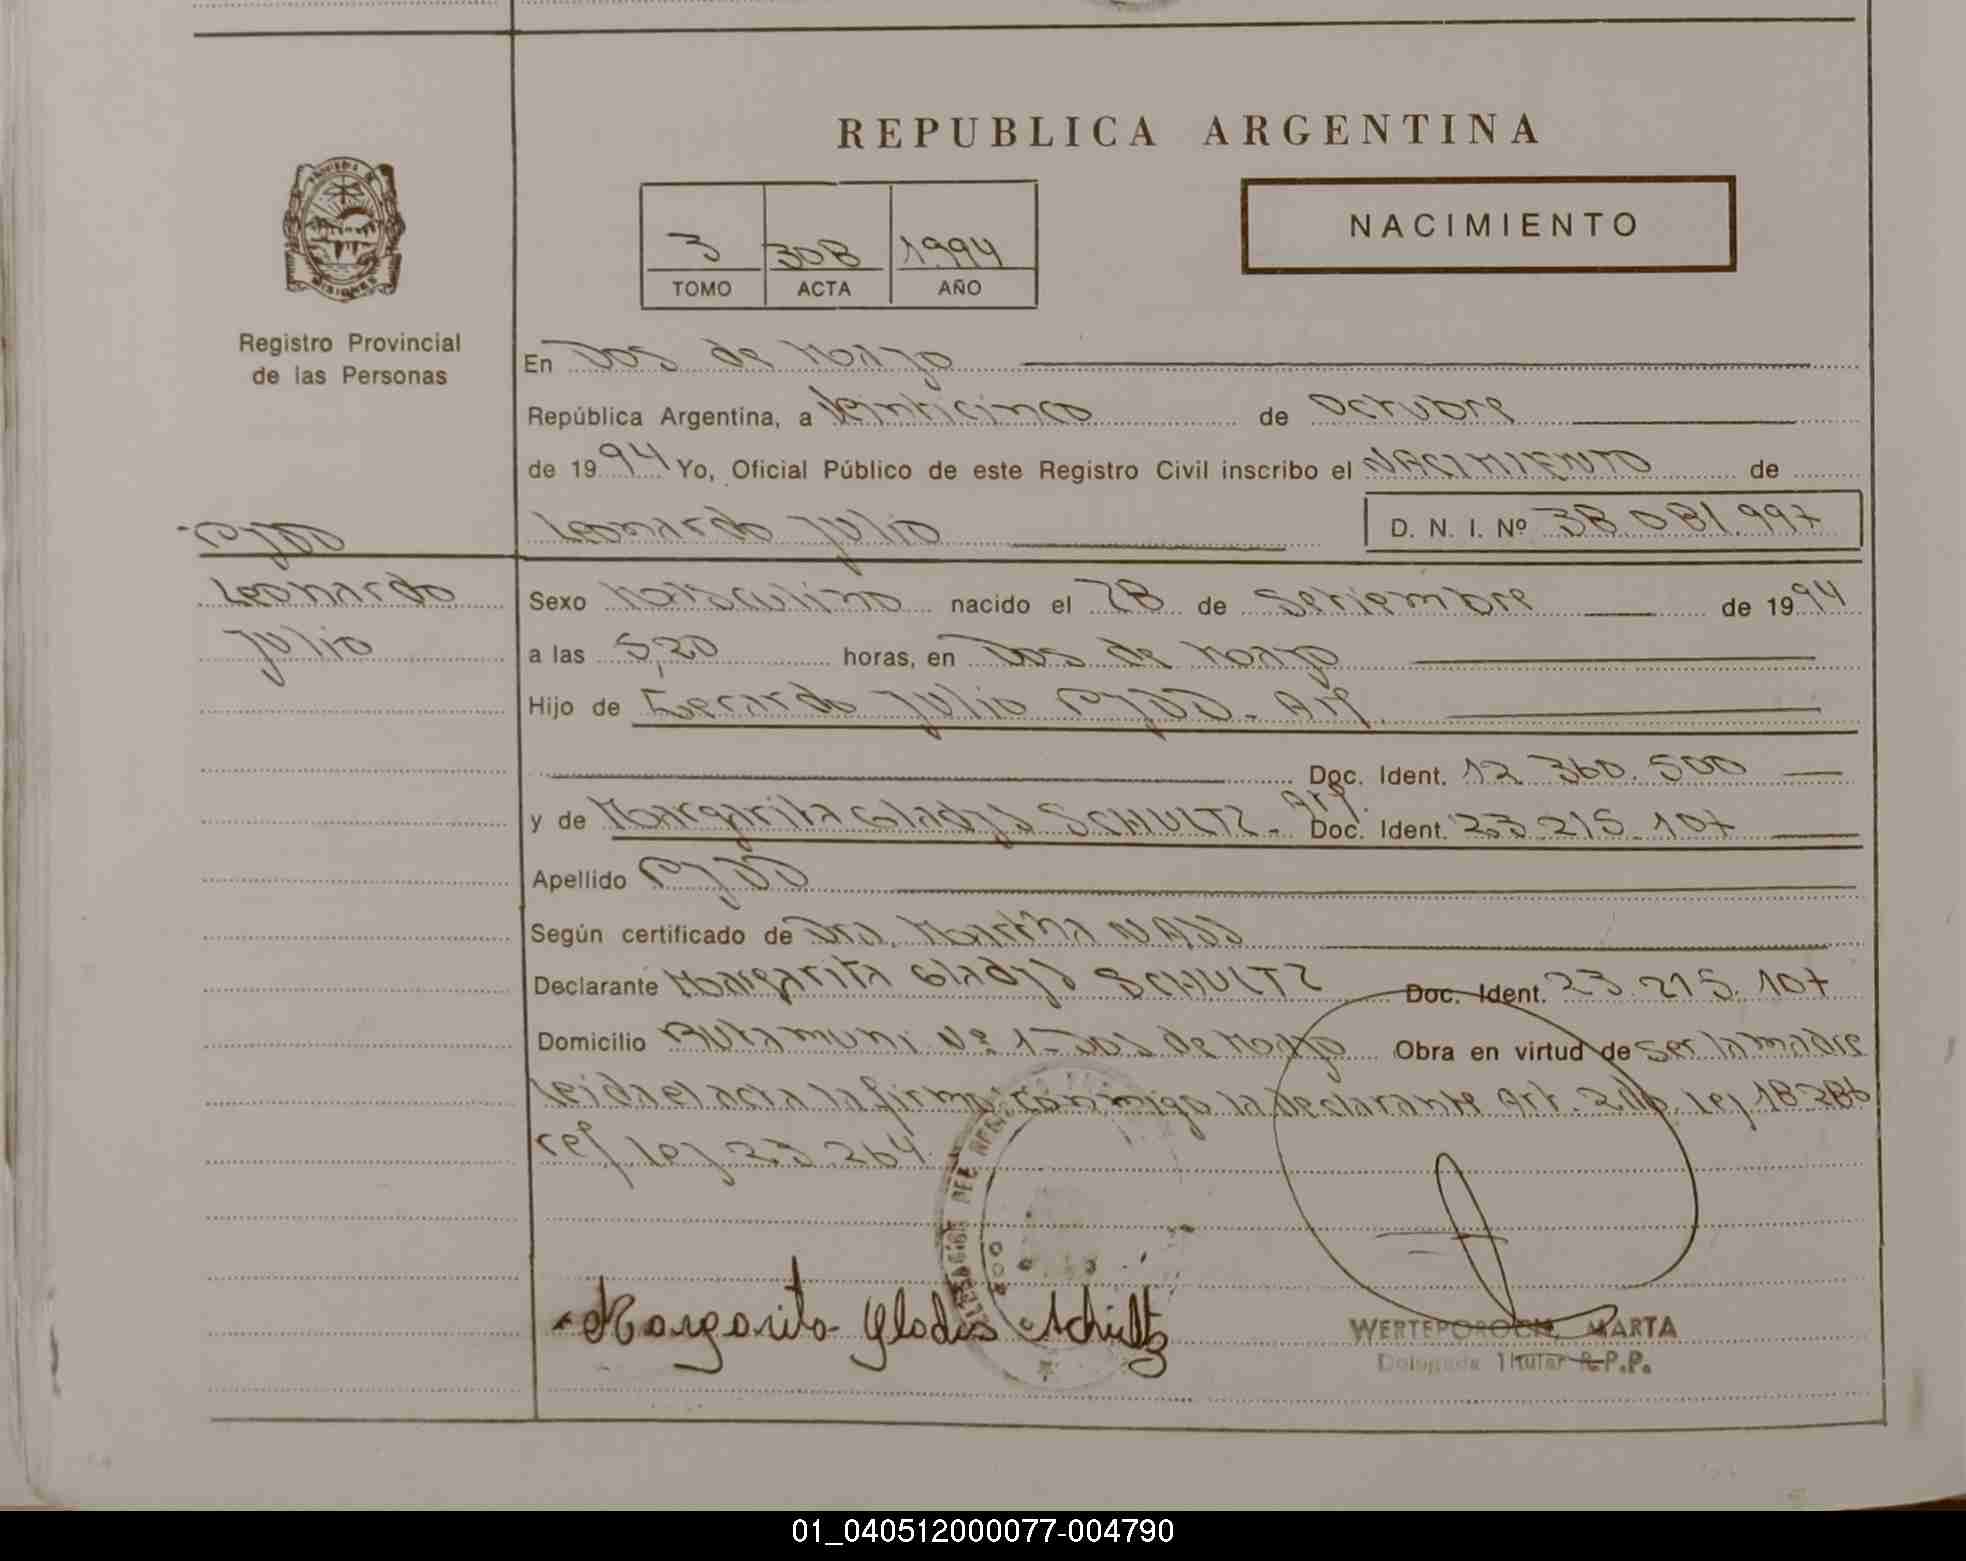 REPUBLICA ARGENTINA
NACIMIENTO
3 308 1994
TOMO ACTA AÑO
Registro Provincial
de las Personas
En Dos de Mayo
República Argentina, a Veinticinco de Octubre
de 1994 Yo, Oficial Público de este Registro Civil inscribo el NACIMIENTO de
Leonardo Julio D. N. I. Nº 38.081.997
Leonardo
Julio
Sexo Masculino nacido el 28 de Setiembre de 1994
a las 5,20 horas, en Dos de Mayo
Hijo de Gerardo Julio - Arg.
Doc. Ident. 12.360.500
y de Margarita Gladys SCHULTZ - Arg. Doc. Ident. 23.215.107
Apellido
Según certificado de Dra. Martha
Declarante Margarita Gladys SCHULTZ Doc. Ident. 23.215.107
Domicilio Nº 1 - Dos de Mayo Obra en virtud de ser la madre
leida el acta la firma conmigo la declarante Art. Ley 18286
ref. Ley 23.264.
DELEGACION DEL
Margarita Gladis Schultz
MARTA
Delegada Titular R.P.P.
01_040512000077-004790